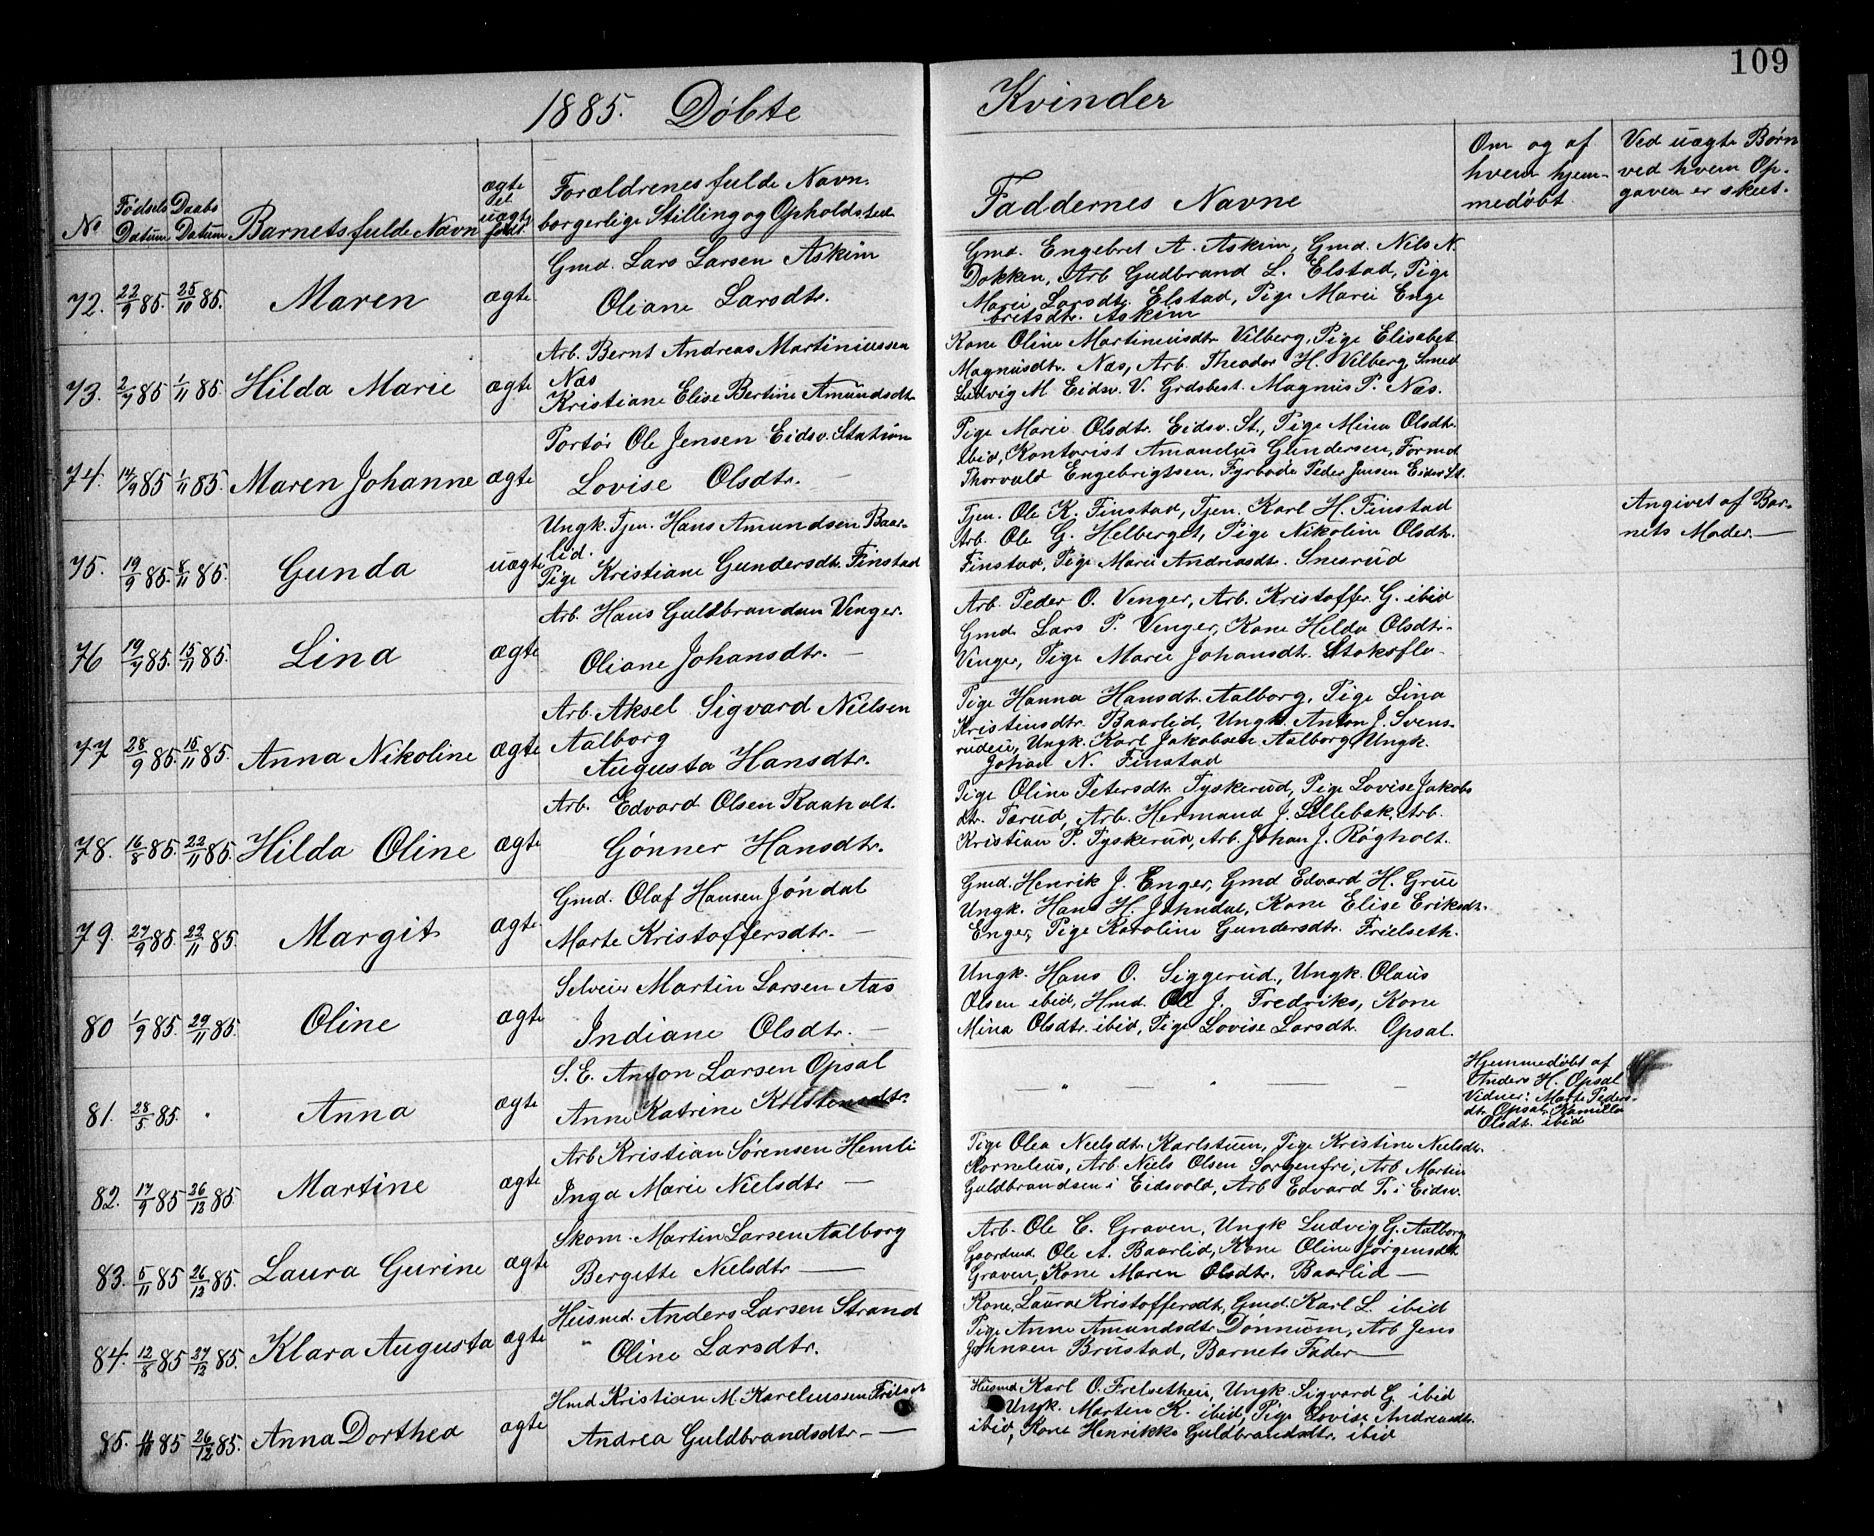 109
1885. Døbte
Kvinder
No
Fødsels Datum
Daabs Datum
Barnets fulde Navn
ægte el uægte født
Forældrenes fulde Navn.
borgerlige Stilling og Opholdsted
Faddernes Navne
Om og af
hvem hjem-
medøbt
Ved uægte Børn
ved hvem Op-
gaven er skeet.
72. 22/9 85. 25/10 85. Maren ægte
Gmd. Lars Larsen Askim
Oliane Larsdtr.
Gmd. Engebret A. Askim, Gmd. Nils N.
Dokken, Arb Gudbrand L. Elstad, Pige
Marie Larsdtr. Elstad, Pige Marie Enge
bretsdtr. Askim
73. 2/9 85 1/11 85. Hilda Marie ægte
Arb. Bernt Andreas Martiniussen
Næs
Kristiane Elise Bertine Amundsdtr
Kone Oline Martiniusdtr Vilberg, Pige Elisabet
Magnusdtr. Næs, Arb. Theodor H. Vilberg, Smed
Ludvig M Eidsv. V. Grdsbest. Magnus P. Næs.
74. 14/9 85 1/11 85. Maren Johanne ægte
Portør Ole Jensen Eidsv. Station
Lovise Olsdtr. —
Pige Marie Olsdtr. Eidsv. St., Pige Mina Olsdtr.
ibid, Kontorist Amandus Gundersen, Formd
Thorvald Engebrigtsen, Fyrbøde Peder Jensen Eidsv St.
75. 19/9 85. 8/11 85. Gunda uægte
Ungk. Tjen. Hans Amundsen Baar-
lid.
Pige Kristiane Gundersdtr. Finstad
Tjen. Ole K. Finstad, Tjen. Karl H. Finstad
Arb. Ole G. Helberget, Pige Nikoline Olsdtr.
Finstad, Pige Marie Andreasdtr. Snesrud
Angivet af Bar-
nets Moder. —
76 19/9 85. 15/11 85. Lina ægte
Arb. Hans Guldbrandsen Venger.
Oliane Johansdtr. —
Arb. Peder O. Venger, Arb. Kristoffer G. ibid
Gmd. Lars P. Venger, Kone Hilda Olsdtr.
Venger, Pige Marie Johansdtr. Stoksflo-
77 28/9 85. 15/11 85. Anna Nikoline ægte
Arb. Aksel Sigvard Nielsen
Aalborg
Augusta Hansdtr.
Pige Hanna Hansdtr. Aalborg, Pige Lina
Kristiansdtr. Baarlid, Ungk. Anton J. Svens-
rudeie, Ungk. Karl Jakobsen Aalborg, Ungk.
Johan N. Finstad
78. 16/8 85. 22/11 85. Hilda Oline ægte
Arb. Edvard Olsen Raaholt.
Gønner Hansdtr.
Pige Oline Petersdtr. Tyskerud, Pige Lovise Jakobs
dtr. Tærud, Arb. Hermand J. Lillebæk, Arb.
Kristian P. Tyskerud, Arb. Johan J. Røgholt.
79. 27/9 85. 22/11 85. Margit ægte
Gmd. Olaf Hansen Jøndal
Marte Kristoffersdtr. —
Gmd. Henrik J. Enger, Gmd Edvard H. Grue
Ungk. Hans H. Jøhndal, Kone Elise Eriksdtr.
Enger, Pige Karoline Gundersdtr. Frielseth.
80 1/9 85. 29/11 85. Oline ægte
Selveier Martin Larsen Aas
Indiane Olsdtr. —
Ungk. Hans O. Siggerud, Ungk. Olaus
Olsen ibid, Hmd. Ole J. Fredriks, Kone
Mina Olsdtr. ibid, Pige Lovise Larsdtr. Opsal.
81. 28/5 85. Anna ægte
S. E. Anton Larsen Opsal
Anne Katrine Kristensdtr.
— " — " — —
Hjemmedøbt af
Anders H. Opsal
Vidner: Marte Peders-
dtr. Opsal, Kamilla
Olsdtr. ibid
82. 17/9 85 26/12 85 Martine ægte
Arb Kristian Sørensen Hemli
Inga Marie Nielsdtr —
Pige Olea Nielsdtr. Karlstuen, Pige Kristine Nielsdtr.
Kornelius, Arb. Niels Olsen Sorgenfri, Arb Martin
Guldbrandsen i Eidsvold, Arb Edvard T. i Eidsv.
83. 5/11 85 26/12 85. Laura Gurine ægte
Skom. Martin Larsen Aalborg
Bergitte Nielsdtr —
Arb. Ole C. Graven, Ungk Ludvig G. Aalborg
Gaardmd. Ole A. Baarlid, Kone Oline Jørgensdtr
Graven, Kone Maren Olsdtr. Baarlid —
84. 12/8 85 27/12 85. Klara Augusta ægte
Husmd. Anders Larsen Strand
" Oline Larsdtr.
Kone Laura Kristoffersdtr, Gmd. Karl L. ibid
Pige Anne Amundsdtr Dønnum, Arb Jens
Johnsen Brustad, Barnets Fader —
85. 85 26/12 85. Anna Dorthea ægte
Hmd Kristian M. Kareliussen
Andrea Guldbrandsdtr. — —
Husmd Karl O. Frelsetheie, Ungk Sigvard G. ibid
Ungk. Morten K. ibid, Pige Lovise Andreasdtr.
ibid, Kone Henrikke Guldbrandsdtr. ibid